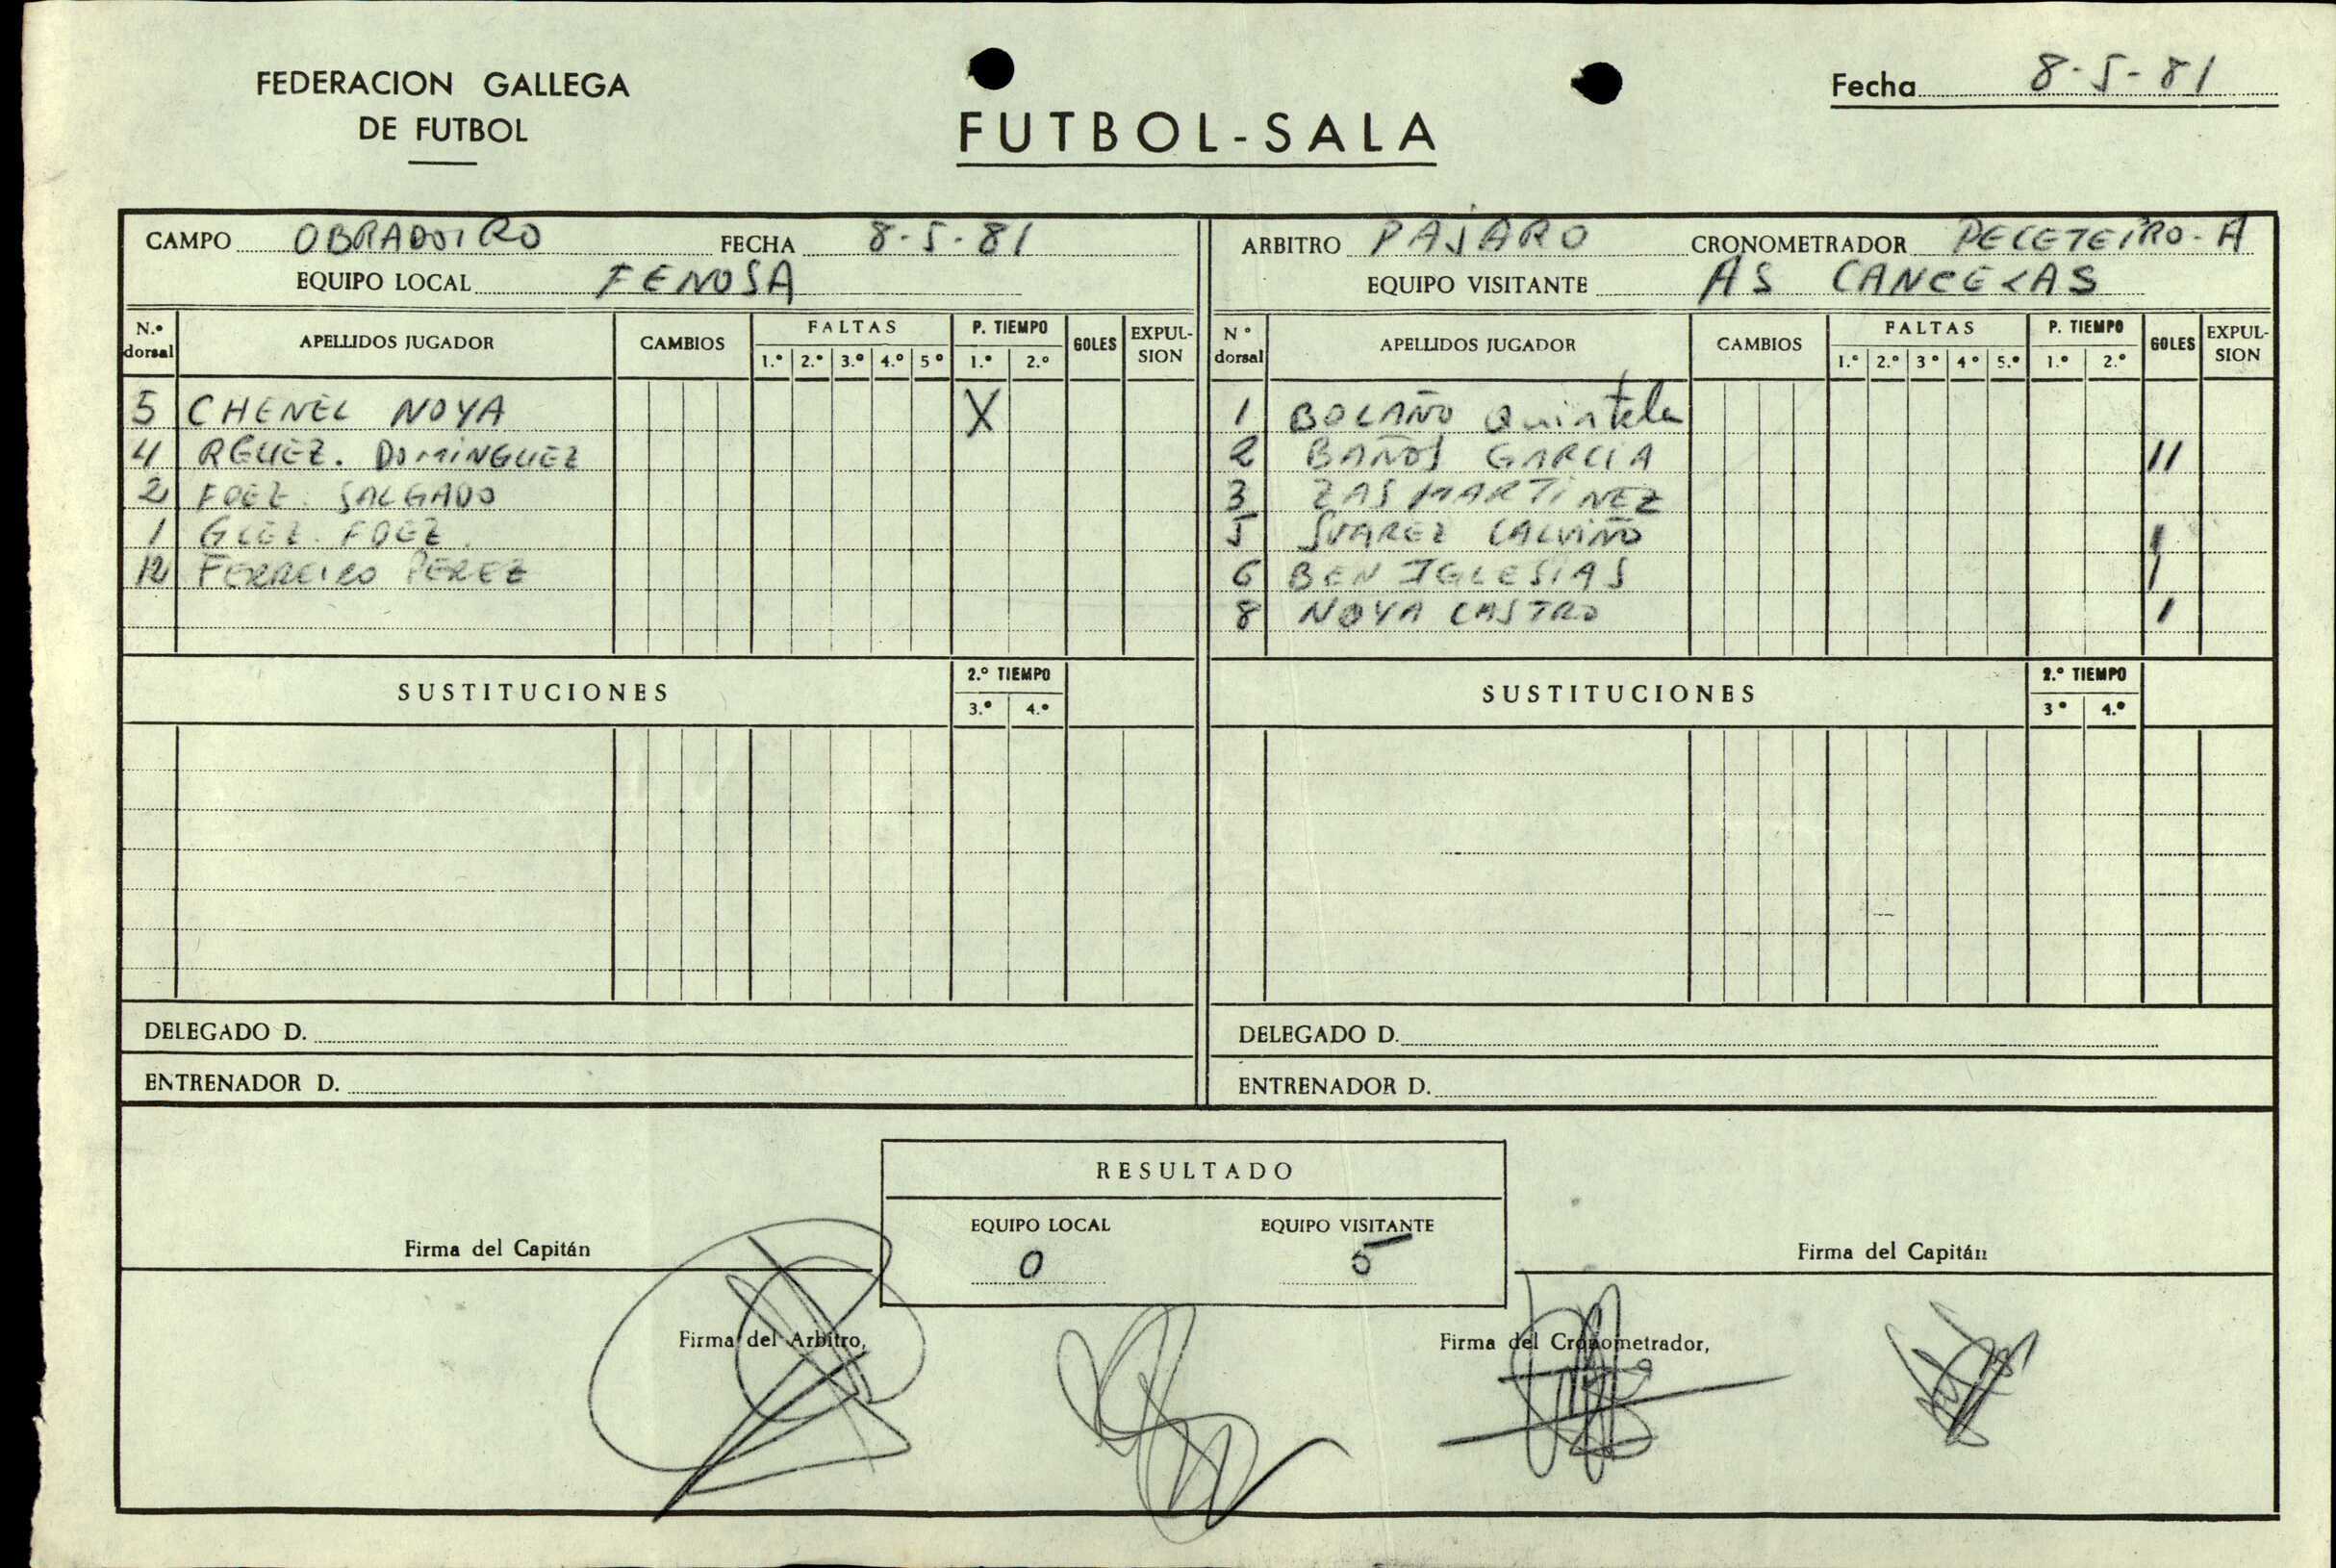 FEDERACION GALLEGA
DE FUTBOL
FUTBOL-SALA
Fecha 8-5-81
CAMPO OBRADOIRO FECHA 8-5-81
EQUIPO LOCAL FENOSA
N.º dorsal APELLIDOS JUGADOR CAMBIOS FALTAS 1.º 2.º 3.º 4.º 5º P. TIEMPO 1.º 2.º GOLES EXPUL-SION
5 CHENEL NOYA X
4 RGUEZ. DOMINGUEZ
2 FDEZ. SALGADO
1 GLEZ. FDEZ.
12 FERREIRO PEREZ
SUSTITUCIONES 2.º TIEMPO 3.º 4.º
DELEGADO D.
ENTRENADOR D.
ARBITRO PAJARO CRONOMETRADOR PELETEIRO-A
EQUIPO VISITANTE AS CANCELAS
Nº dorsal APELLIDOS JUGADOR CAMBIOS FALTAS 1.º 2.º 3º 4º 5.º P. TIEMPO 1.º 2.º GOLES EXPUL-SION
1 BOLAÑO Quintela
2 BAÑOS GARCIA II
3 ZAS MARTINEZ
5 SUAREZ CALVIÑO I
6 BEN IGLESIAS I
8 NOYA CASTRO I
SUSTITUCIONES 2.º TIEMPO 3º 4.º
DELEGADO D.
ENTRENADOR D.
RESULTADO
EQUIPO LOCAL EQUIPO VISITANTE
0 5
Firma del Capitán
Firma del Capitán
Firma del Arbitro,
Firma del Cronometrador,